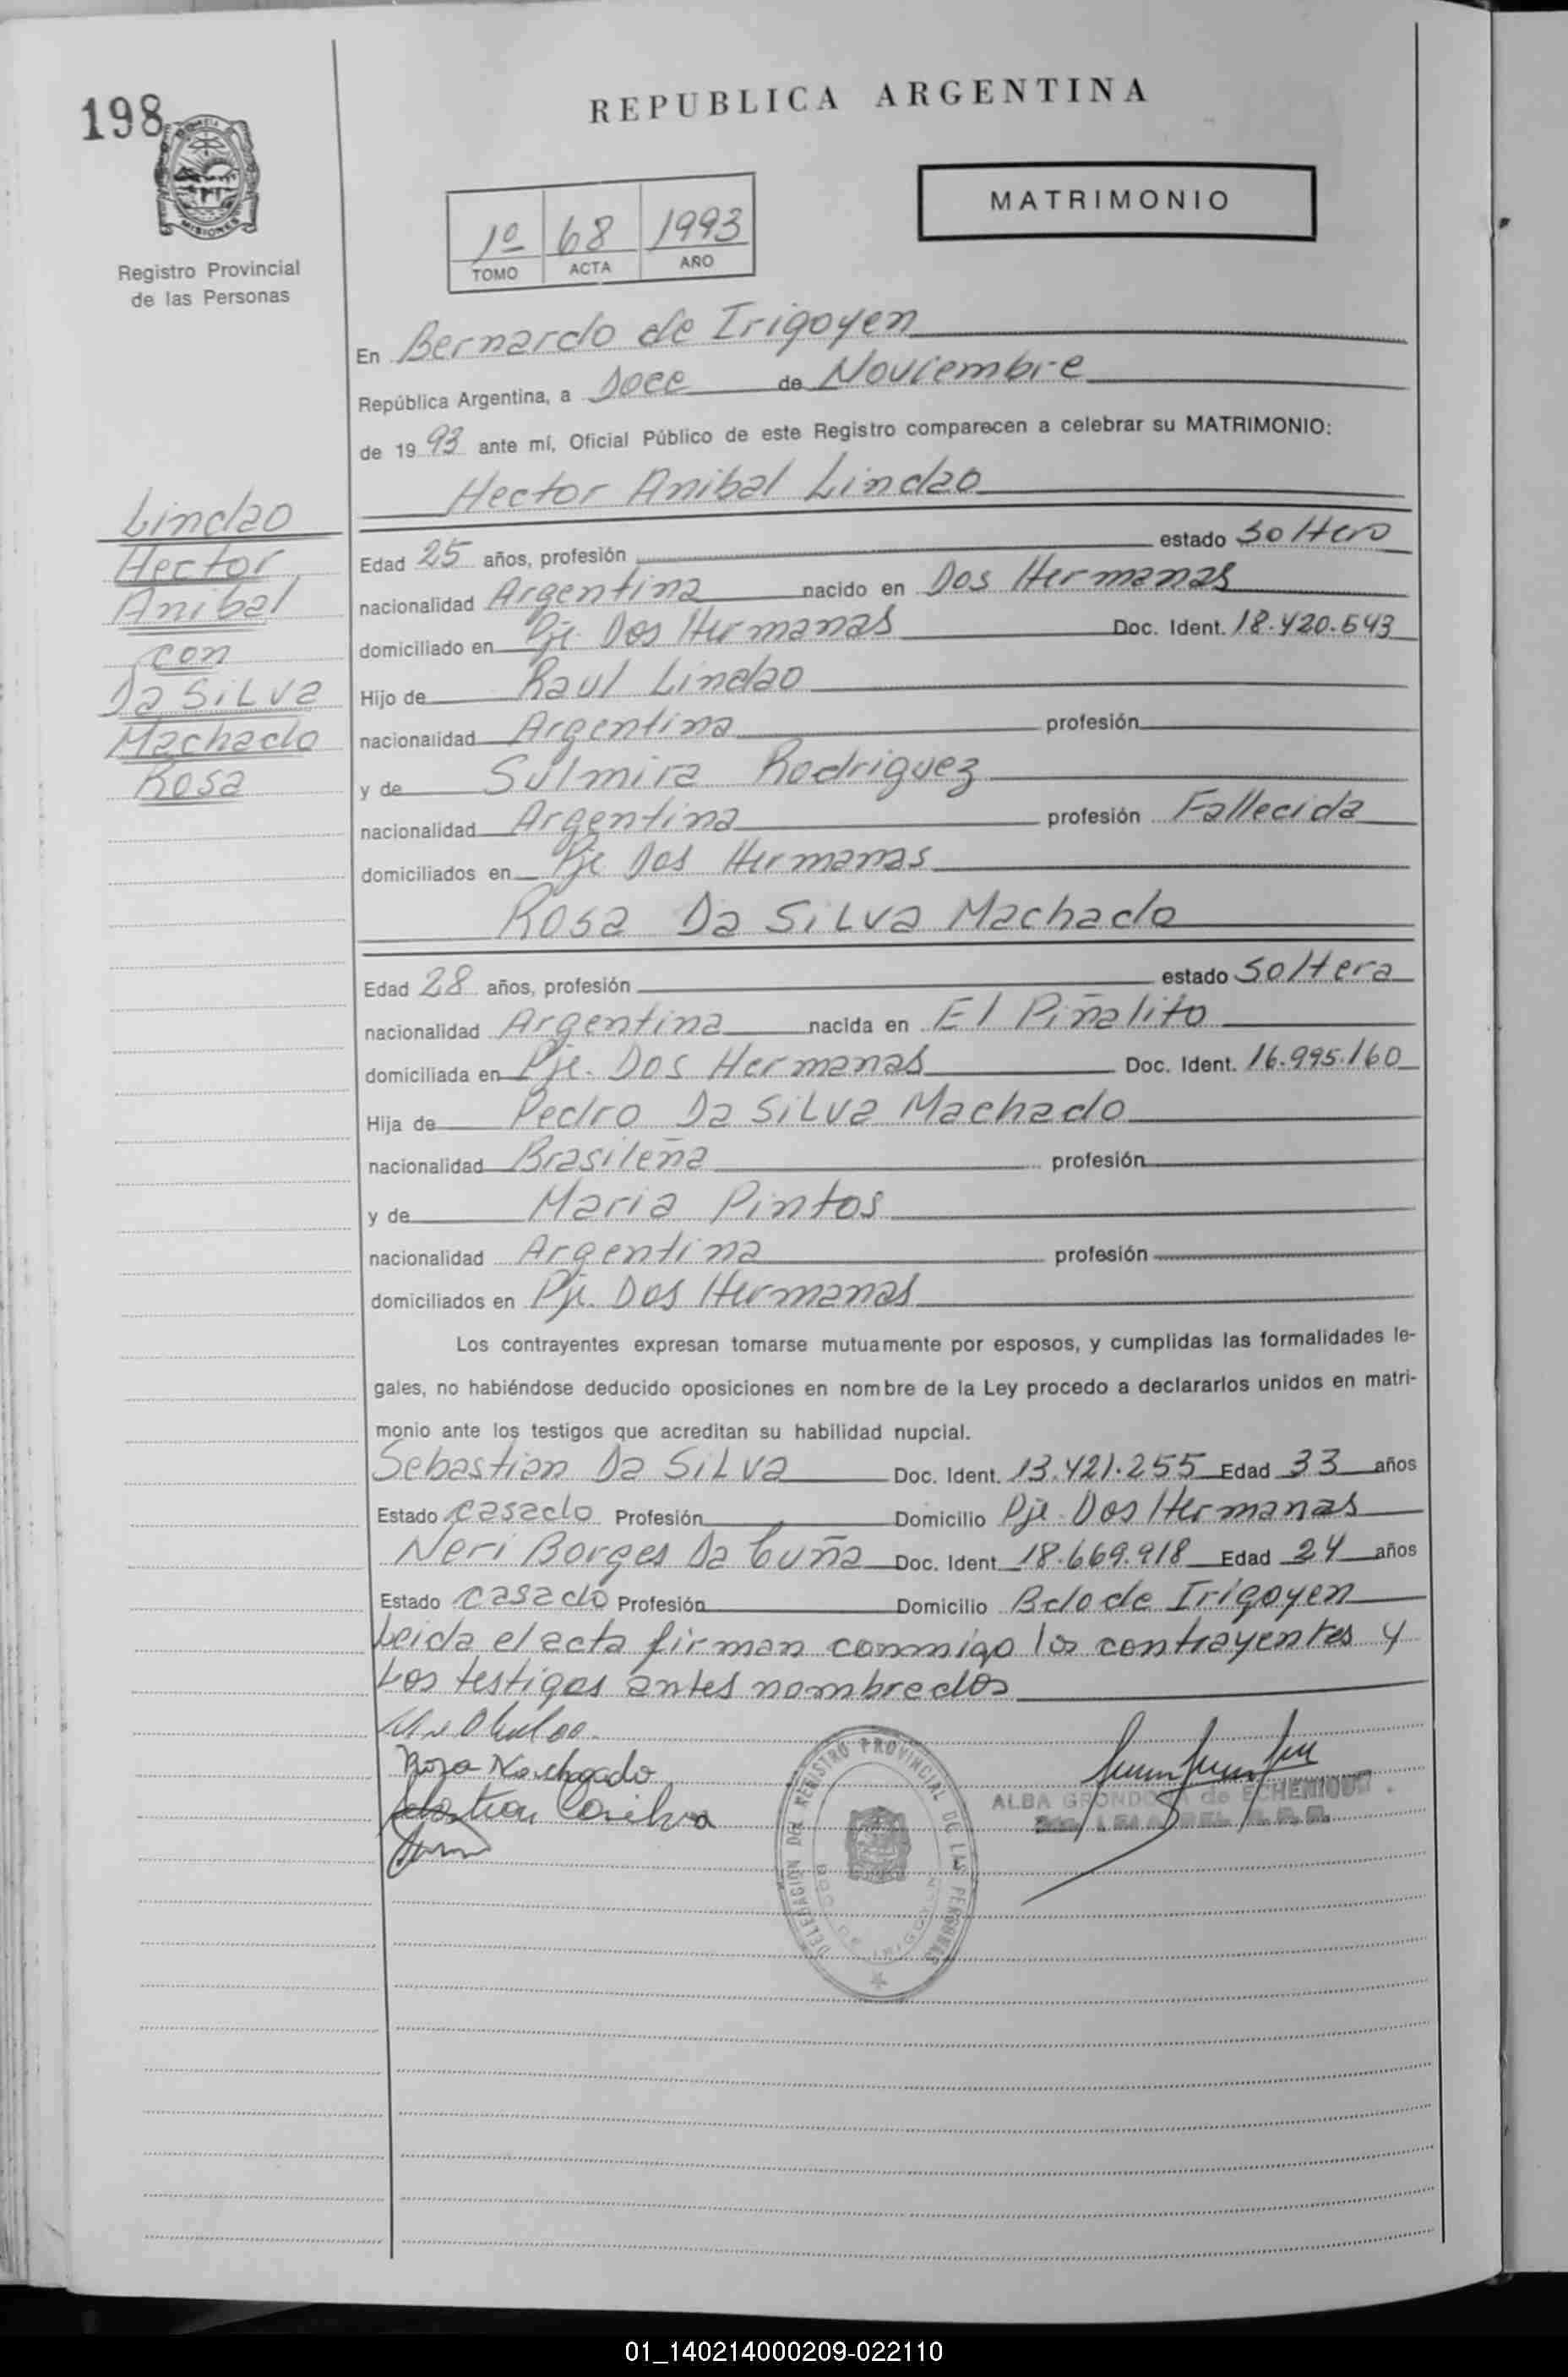 198
REPUBLICA ARGENTINA
MISIONES
Registro Provincial
de las Personas
1º 68 1993
TOMO ACTA AÑO
MATRIMONIO
En Bernardo de Irigoyen
República Argentina, a Doce de Noviembre
de 1993 ante mí, Oficial Público de este Registro comparecen a celebrar su MATRIMONIO:
Hector Anibal Lindao
Lindao
Hector
Anibal
con
Da SiLVa
Machado
Rosa
Edad 25 años, profesión estado Soltero
nacionalidad Argentina nacido en Dos Hermanas
domiciliado en Pje. Dos Hermanas Doc. Ident. 18.420.543
Hijo de Raul Lindao
nacionalidad Argentina profesión
y de Sulmira Rodriguez
nacionalidad Argentina profesión Fallecida
domiciliados en Pje Dos Hermanas
Rosa Da SiLVa Machado
Edad 28 años, profesión estado Soltera
nacionalidad Argentina nacida en El Piñalito
domiciliada en Pje. Dos Hermanas Doc. Ident. 16.995.160
Hija de Pedro Da SiLVa Machado
nacionalidad Brasileña profesión
y de Maria Pintos
nacionalidad Argentina profesión
domiciliados en Pje. Dos Hermanas
Los contrayentes expresan tomarse mutuamente por esposos, y cumplidas las formalidades le-
gales, no habiéndose deducido oposiciones en nombre de la Ley procedo a declararlos unidos en matri-
monio ante los testigos que acreditan su habilidad nupcial.
Sebastian Da SiLVa Doc. Ident. 13.421.255 Edad 33 años
Estado casado Profesión Domicilio Pje. Dos Hermanas
Neri Borges Da Cuña Doc. Ident. 18.669.918 Edad 24 años
Estado casado Profesión Domicilio Bdo de Irigoyen
Leida el acta firman conmigo los contrayentes y
Los testigos antes nombrados
Rosa Machado
DELEGACION DEL REGISTRO PROVINCIAL DE LAS PERSONAS
BDO. DE IRIGOYEN
ALBA GRONDONA de ECHENIQUE
01_140214000209-022110